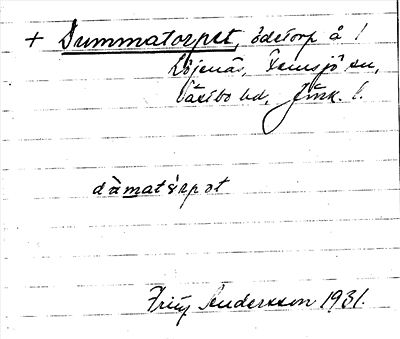 + Dummatorpet, ödetorp å 1
Böjenäs, Femsjö sn,
Västbo hd, Jönk. l.
dùmatǒrpət
Fritz Andersson 1931.